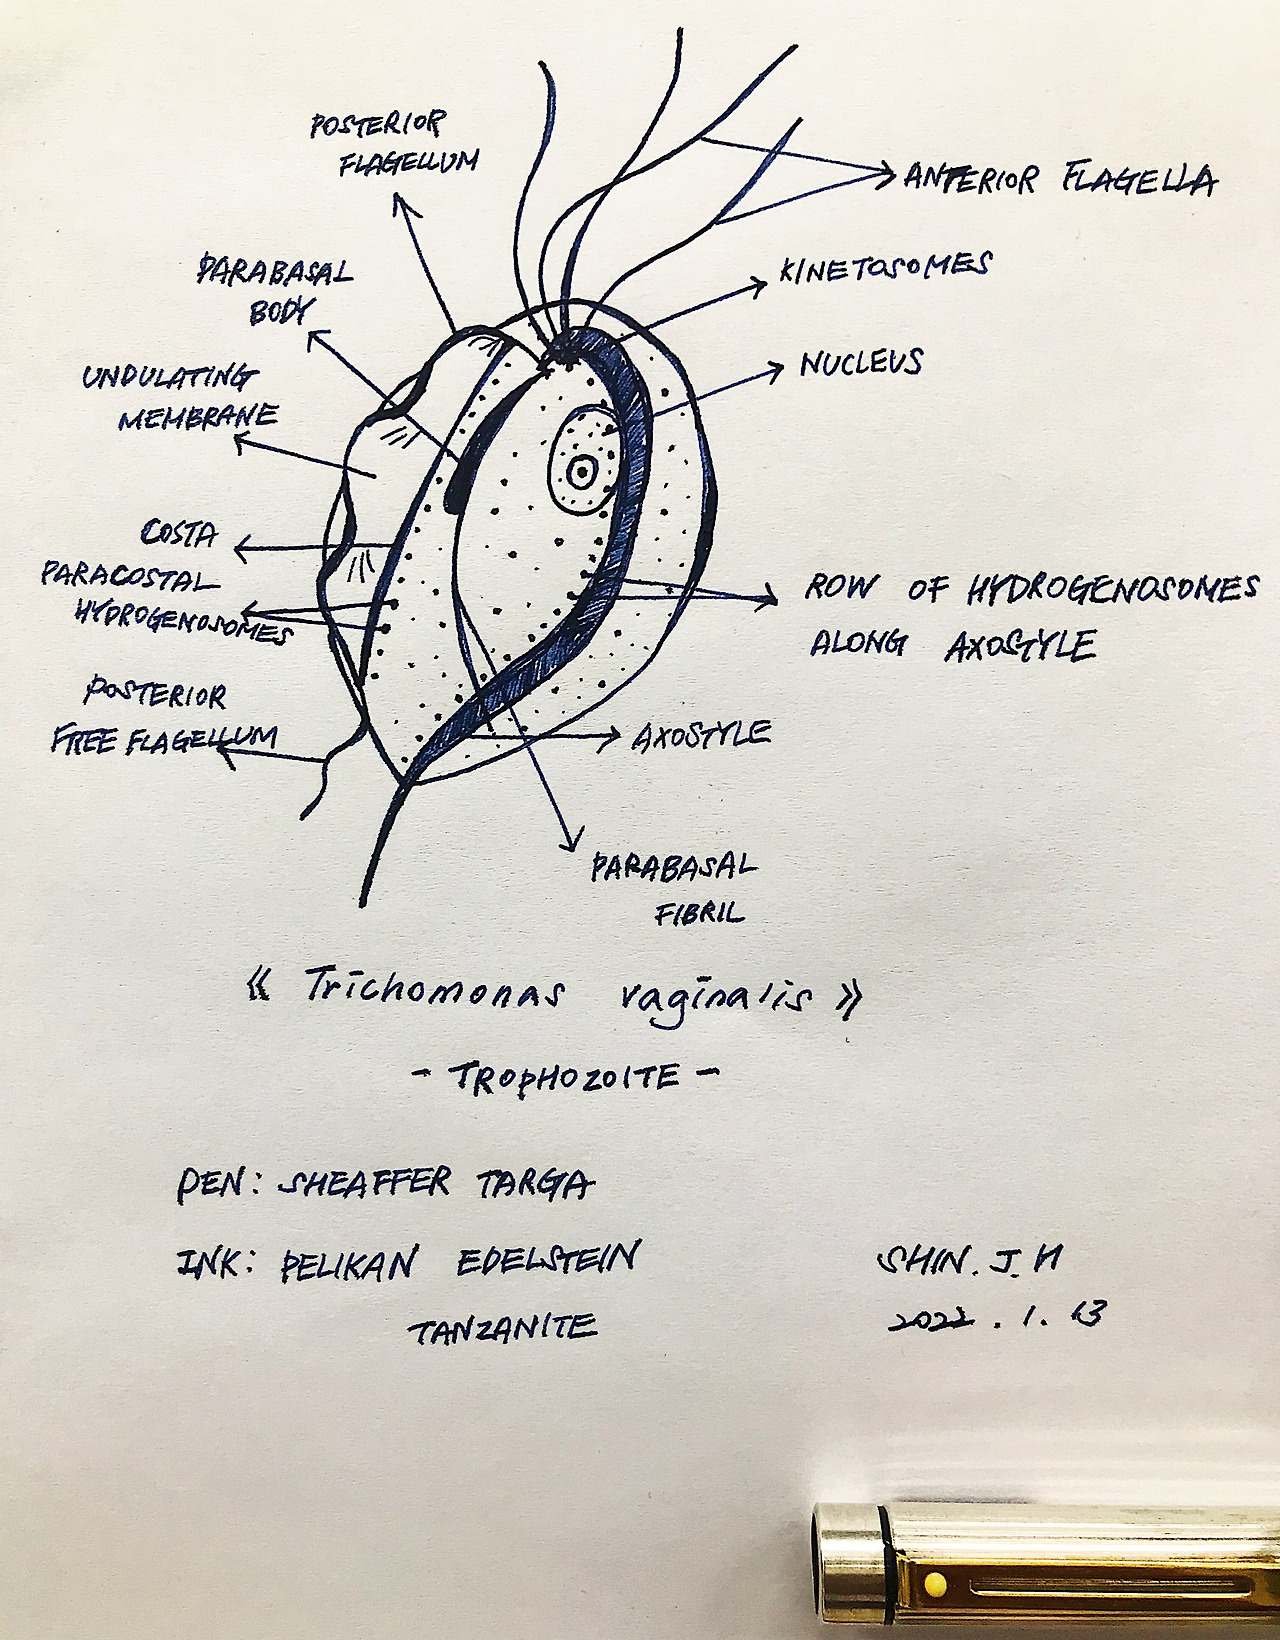 POSTERIOR
FLAGELLUM
ANTERIOR FLAGELLA
PARABASAL
BODY
KINETOSOMES
UNDULATING
MEMBRANE
NUCLEUS
COSTA
PARACOSTAL
HYDROGENOSOMES
ROW OF HYDROGENOSOMES
ALONG AXOSTYLE
POSTERIOR
FREE FLAGELLUM
AXOSTYLE
PARABASAL
FIBRIL
《 Trichomonas vaginalis 》
- TROPHOZOITE -
PEN: SHEAFFER TARGA
INK: PELIKAN EDELSTEIN
TANZANITE
SHIN. J. H
2022. 1. 13